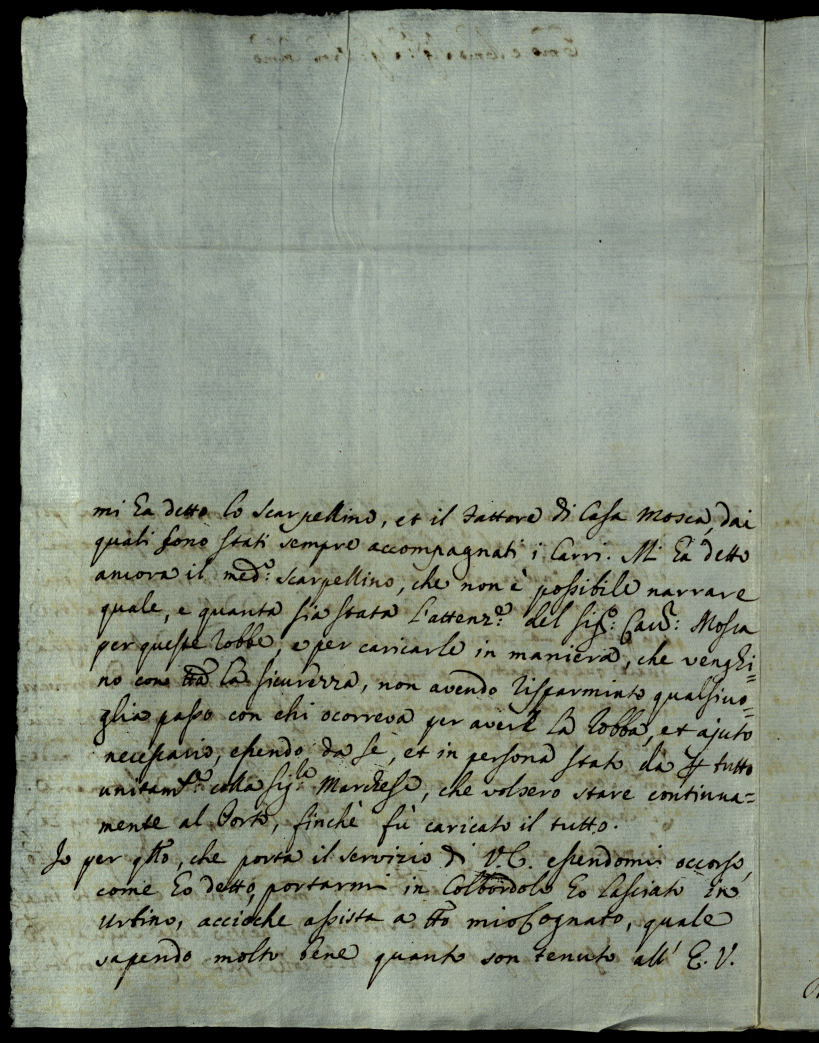 mi ha detto lo scarpellino, et il Fattore di Casa Mosca, dai
quali sono stati sempre accompagnati i Carri. Mi hà detto
ancora il med.º scarpellino, che non è possibile narrare
quale, e quanta sia stata l'attenz.e del Sig.r Cav.r Mosca
per queste robbe, e per caricarle in maniera, che venghi=
no con tta la sicurezza, non avendo risparmiato qualsivo=
glia passo con chi ocorreva per avere la robba, et ajuto
necessario, essendo da se, et in persona stato da p tutto
unitam.te colla Sig.ra Marchesa, che volsero stare continua=
mente al Porto, finchè fù caricato il tutto.
Io per qto, che porta il servizio di V.E. essendomi occorso,
come hò detto, portarmi in Colbordolo hò lasciato in
Urbino, acciòche assista a tto mio Cognato, quale
sapendo molto bene quanto son tenuto all' E.V.